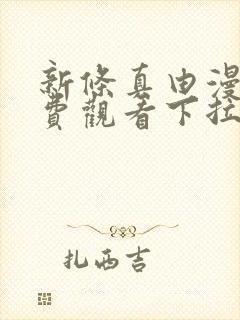 新條真由漫
費觀看下拉
扎西吉